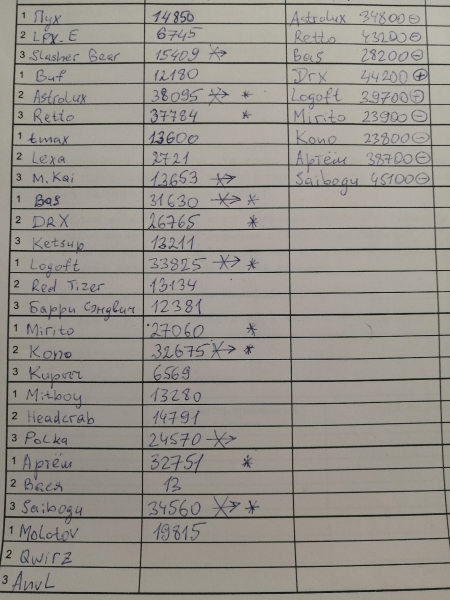 1 Пух 14850 Astrolux 34800⊖
2 LPX_E 6745 Retto 43200⊖
3 Slasher Gear 15409 Bas 28200⊖
1 Buf 12180 Drx 44200⊕
2 Astrolux 38095 * Logoft 39700⊖
3 Retto 37784 * Mirito 23900⊖
1 tmax 13600 Kono 23800⊖
2 Lexa 2721 Артём 38700⊖
3 M.Kai 13653 Saibogu 45100⊖
1 Bas 31630 *
2 DRX 26765 *
3 Ketsup 13211
1 Logoft 33825 *
2 Red Tizer 13134
3 Барри Сэндвич 12381
1 Mirito 27060 *
2 Kono 32675 *
3 6569
1 Mitboy 13280
2 Headcrab 14791
3 Polka 24570
1 Артём 32751 *
2 Вася 13
3 Saibogu 34560 *
1 Molotov 19815
2 Qwirz
3 AnvL